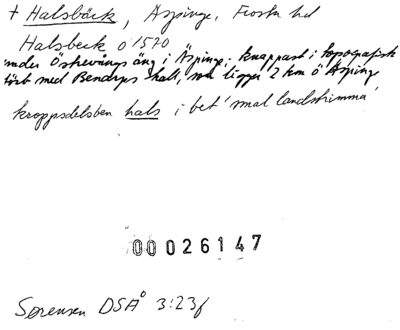 + Halsbäck, Äspinge, Frosta hd
Halsbeck ö 1570
under Östrevångs äng i Äspinge; knappast i topografisk
med Bendrps hall, som ligger 2 km ö Äspinge
kroppsdelsben hals i bet 'smal landstrimma'
00026147
Sørensen DSÅ 3:23f